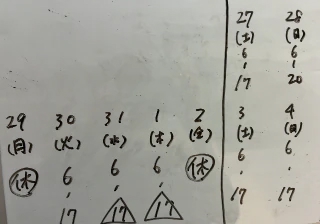 27 28
(土) (日)
6 6
' '
17 20
29 30 31 1 2 3 4
(月) (火) (水) (木) (金) (土) (日)
休 6 6 6 休 6 6
' ' ' ' '
17 17 17 17 17